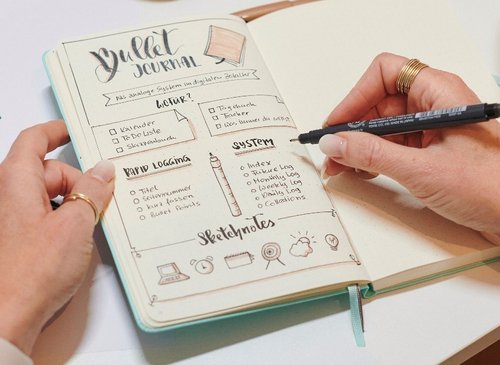 Bullet
JOURNAL
Als analoge System im digitalen Zeitalter
WOFÜR?
Kalender
To Do Liste
Skizzenbuch
Tagebuch
Tracker
Was immer du willst
RAPID LOGGING
Titel
Seitennummer
kurz fassen
Bullet Points
SYSTEM
Index
Future Log
Monthly Log
Weekly Log
Daily Log
Collections
Sketchnotes